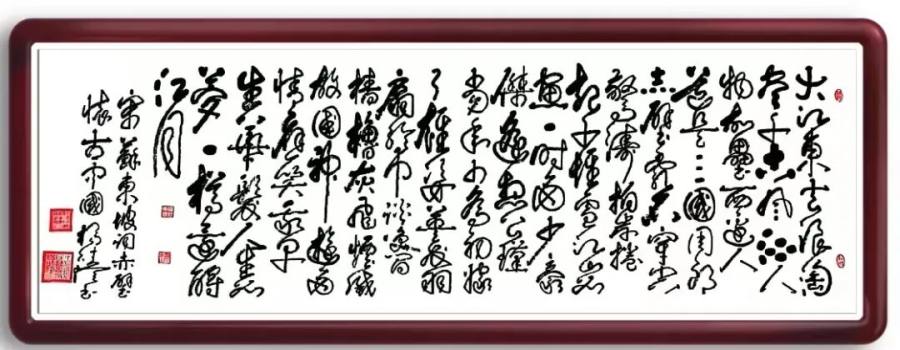 大江東去浪淘
盡千古風流人
物故壘西邊人
道是三國周郎
赤壁亂石穿空
驚濤拍岸捲
起千堆雪江山如
畫一時多少豪
傑遙想公瑾
當年小喬初嫁
了雄姿英發羽
扇綸巾談笑間
檣櫓灰飛煙滅
故國神遊多
情應笑我早
生華髮人生如
夢一樽還酹
江月
宋蘇東坡詞赤壁
懷古中國